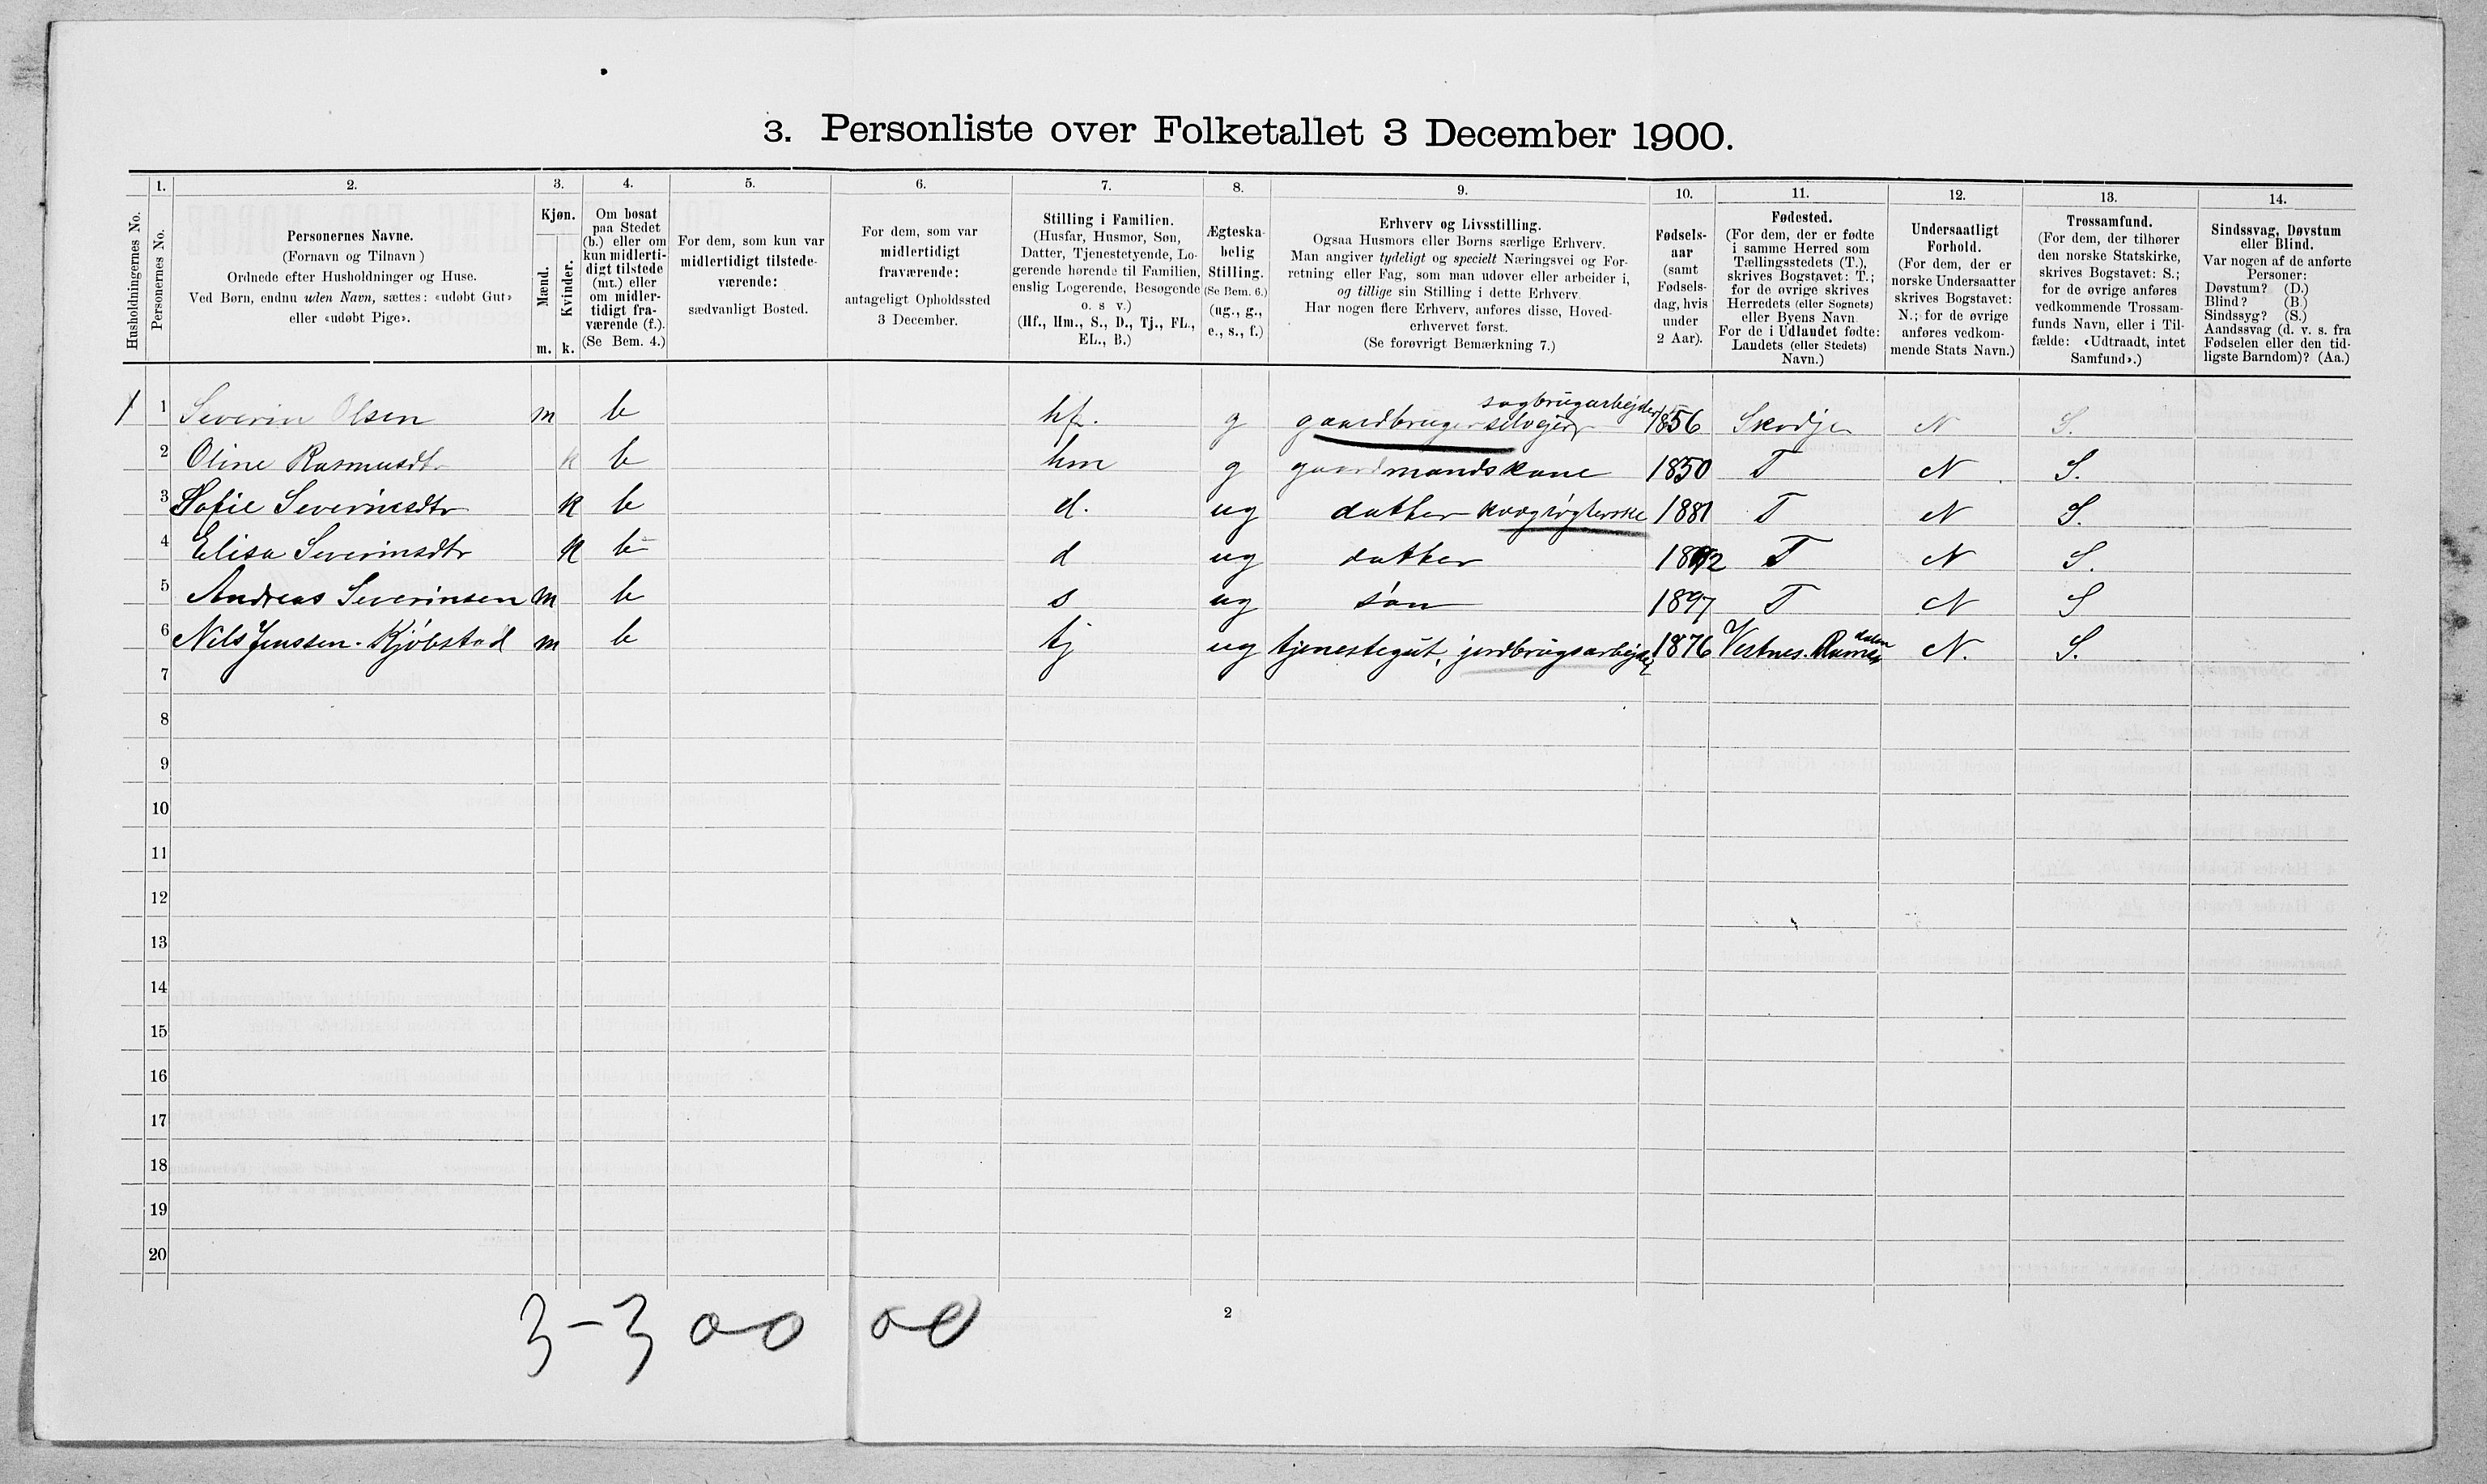 3. Personliste over Folketallet 3 December 1900.
1. 2. 3. 4. 5. 6. 7. 8. 9. 10. 11. 12. 13. 14.
Husholdningernes No.
Personernes No.
Personernes Navne.
(Fornavn og Tilnavn )
Ordnede efter Husholdninger og Huse.
Ved Børn, endnu uden Navn, sættes: «udøbt Gut»
eller «udøbt Pige».
Kjøn.
Mænd.
Kvinder.
m. k.
Om bosat
paa Stedet
(b.) eller om
kun midlerti-
digt tilstede
(mt.) eller
om midler-
tidigt fra-
værende (f.).
(Se Bem. 4.)
For dem, som kun var
midlertidigt tilstede-
værende:
sædvanligt Bosted.
For dem, som var
midlertidigt
fraværende:
antageligt Opholdssted
3 December.
Stilling i Familien.
(Husfar, Husmor, Søn,
Datter, Tjenestetyende, Lo-
gerende hørende til Familien,
enslig Logerende, Besøgende
o. s v.)
(Hf., Hm., S., D., Tj., FL.,
EL., B.)
Ægteska-
belig
Stilling.
(Se Bem. 6.)
(ug., g.,
e., s., f.)
Erhverv og Livsstilling.
Ogsaa Husmors eller Børns særlige Erhverv.
Man angiver tydeligt og specielt Næringsvei og For-
retning eller Fag, som man udøver eller arbeider i,
og tillige sin Stilling i dette Erhverv.
Har nogen flere Erhverv, anføres disse, Hoved-
erhvervet først.
(Se forøvrigt Bemærkning 7.)
Fødsels-
aar
(samt
Fødsels-
dag, hvis
under
2 Aar).
Fødested.
(For dem, der er fødte
i samme Herred som
Tællingsstedets (T.),
skrives Bogstavet: T.;
for de øvrige skrives
Herredets (eller Sognets)
eller Byens Navn
For de i Udlandet fødte:
Landets (eller Stedets)
Navn.)
Undersaatligt
Forhold.
(For dem, der er
norske Undersaatter
skrives Bogstavet:
N.; for de øvrige
anføres vedkom-
mende Stats Navn.)
Trossamfund.
(For dem, der tilhører
den norske Statskirke,
skrives Bogstavet: S.;
for de øvrige anføres
vedkommende Trossam-
funds Navn, eller i Til-
fælde: «Udtraadt, intet
Samfund».)
Sindssvag, Døvstum
eller Blind.
Var nogen af de anførte
Personer:
Døvstum? (D.)
Blind? (B.)
Sindssyg? (S.)
Aandssvag (d. v. s. fra
Fødselen eller den tid-
ligste Barndom)? (Aa.)
sagbrugarbejder
1 1 Severin Olsen m b hf. g gaardbruger selvejer 1856 Skodje N S.
2 Oline Rasmusdtr k b hm g gaardmandskone 1850 T N S.
3 Sofie Severinsdtr k b d. ug datter kvægrøgterske 1881 T N S.
4 Elisa Severinsdtr k b d ug datter 1892 T N S.
5 Andreas Severinsen m b s ug søn 1897 T N S
6 Nils Jenssen Kjøbstad m b tj ug tjenestegut, jordbrugsarbejder 1876 Vestnes. Romsdalen N. S.
7
8
9
10
11
12
13
14
15
16
17
18
19
20
3-3 0-0 0-0
2